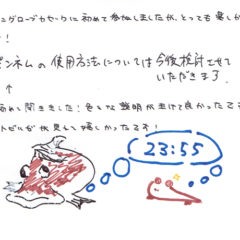 ングローブカヤークに初めて参加しましたが、とっても楽しか
!
ペンネムの使用方法については今後検討させて
いただきます。
↑
初めて聞きました!色々な説明が
良かったです
トビルが
見れて嬉しかったです!
23:55